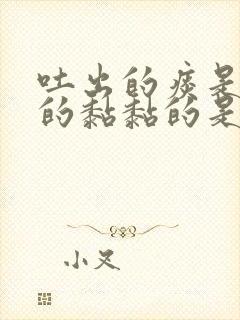 吐出的痰是
的黏黏的是
小叉